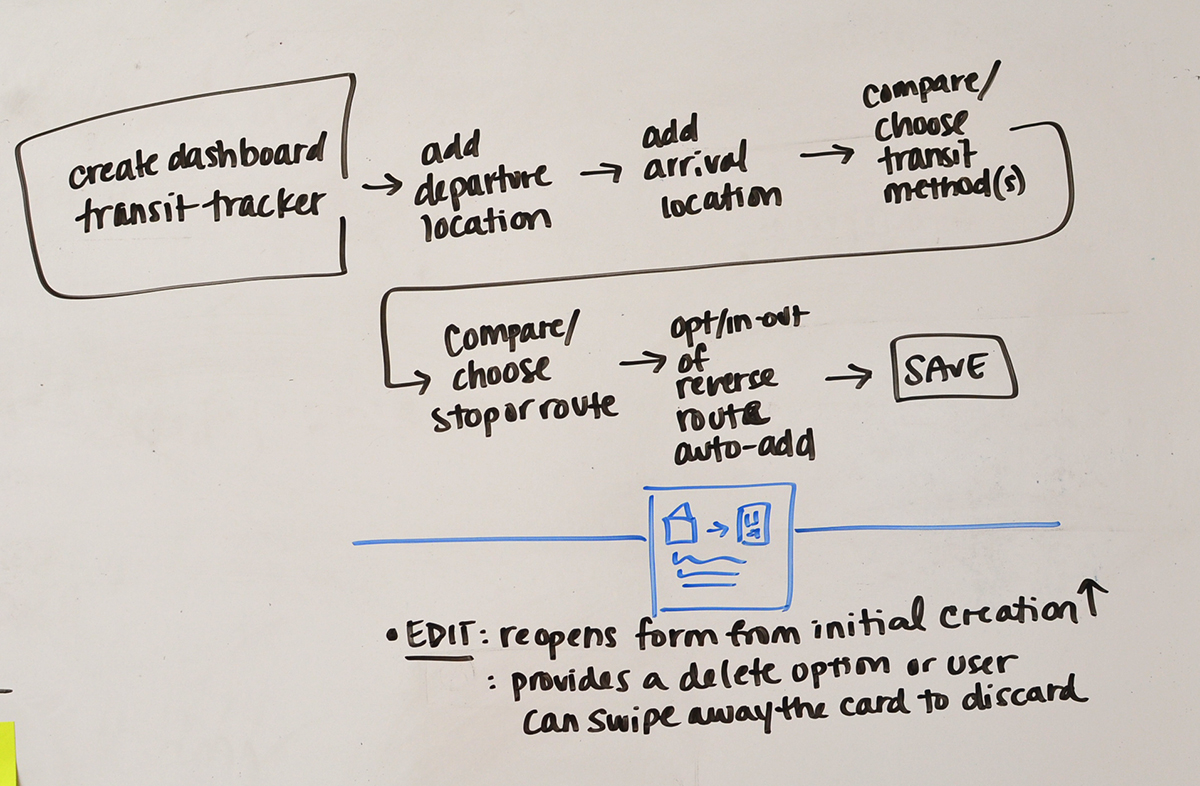 create dashboard
transit tracker
→ add
departure
location
→ add
arrival
location
→ compare/
choose
transit
method(s)
compare/
choose
stop or route
→ opt/in-out
of
reverse
route
auto-add
→ SAVE
• EDIT: reopens form from initial creation ↑
: provides a delete option or user
can swipe away the card to discard